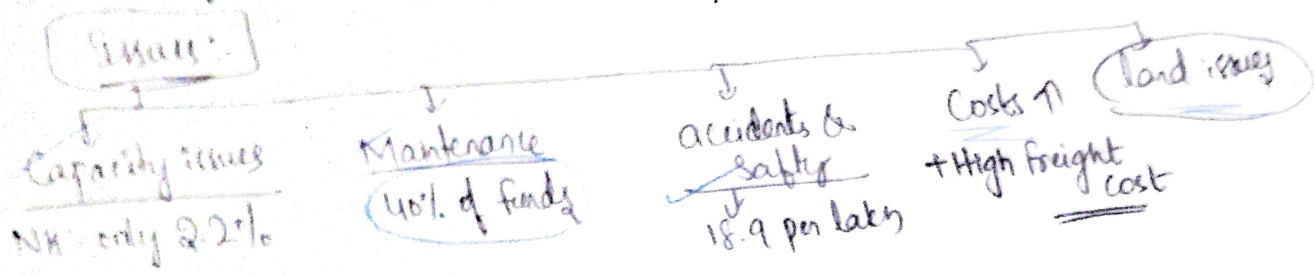 Issues:-
Capacity issues
NH only 2.2%
Maintenance
40% of funds
accidents &
Safty
18.9 per lakh
Costs ↑
+ High freight
cost
land issues